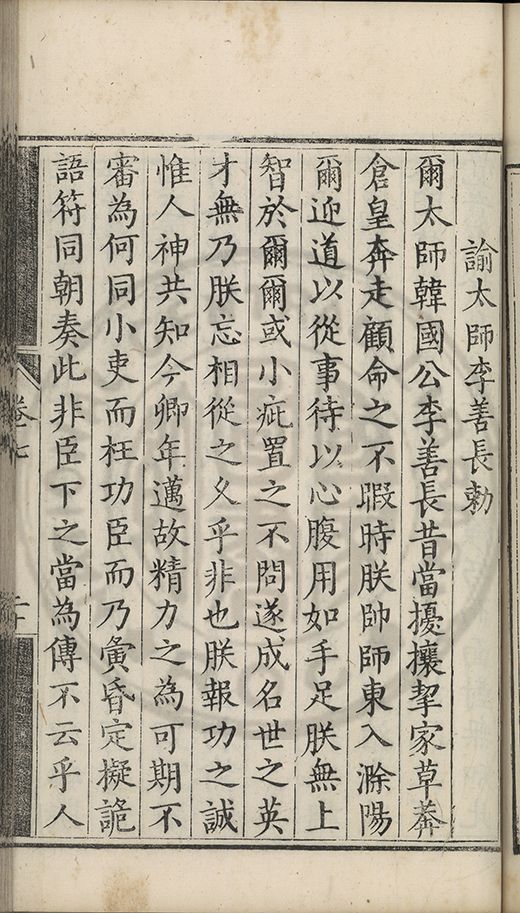 諭太師李善長勅
爾太師韓國公李善長昔當擾攘挈家草莽
倉皇奔走顧命之不暇時朕帥師東入滁陽
爾迎道以從事待以心腹用如手足朕無上
智於爾爾或小疵置之不問遂成名世之英
才無乃朕忘相從之乆乎非也朕報功之誠
惟人神共知今卿年邁故精力之為可期不
審為何同小吏而枉功臣而乃黃昏定擬詭
語符同朝奏此非臣下之當為傳不云乎人
卷七
二十